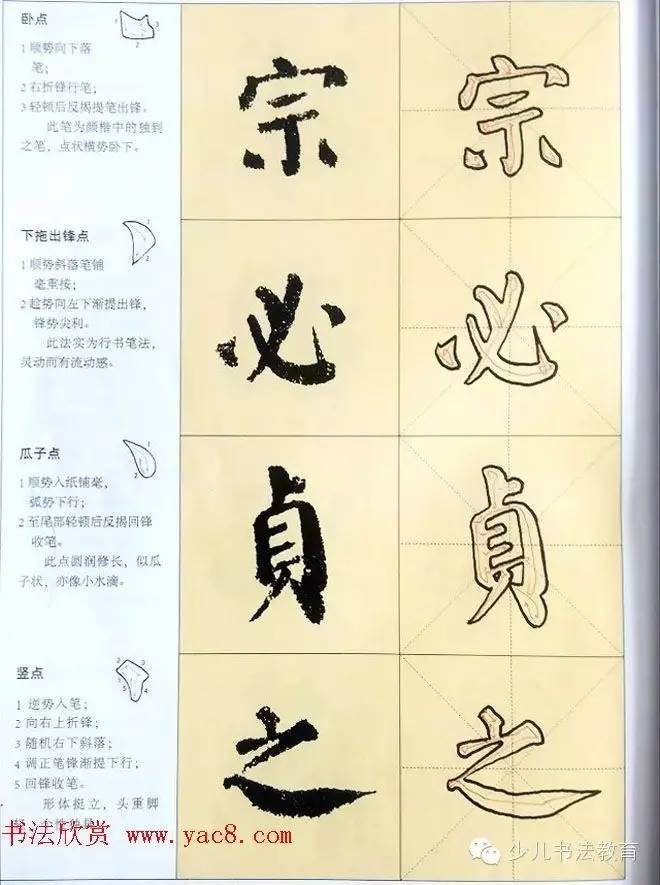 卧点
1 顺势向下落
笔；
2 右折锋行笔；
3 轻顿后反揭提笔出锋。
此笔为颜楷中的独到
之笔，点状横势卧下。
宗
宗
下拖出锋点
1 顺势斜落笔铺
毫重按；
2 趁势向左下渐提出锋，
锋势尖利。
此法实为行书笔法，
灵动而有流动感。
必
必
瓜子点
1 顺势入纸铺毫，
弧势下行；
2 至尾部轻顿后反揭回锋
收笔。
此点圆润修长，似瓜
子状，亦像小水滴。
貞
貞
竖点
1 逆势入笔；
2 向右上折锋；
3 随机右下斜落；
4 调正笔锋渐提下行；
5 回锋收笔。
形体挺立，头重脚
之
之
书法欣赏 www.yac8.com
少儿书法教育